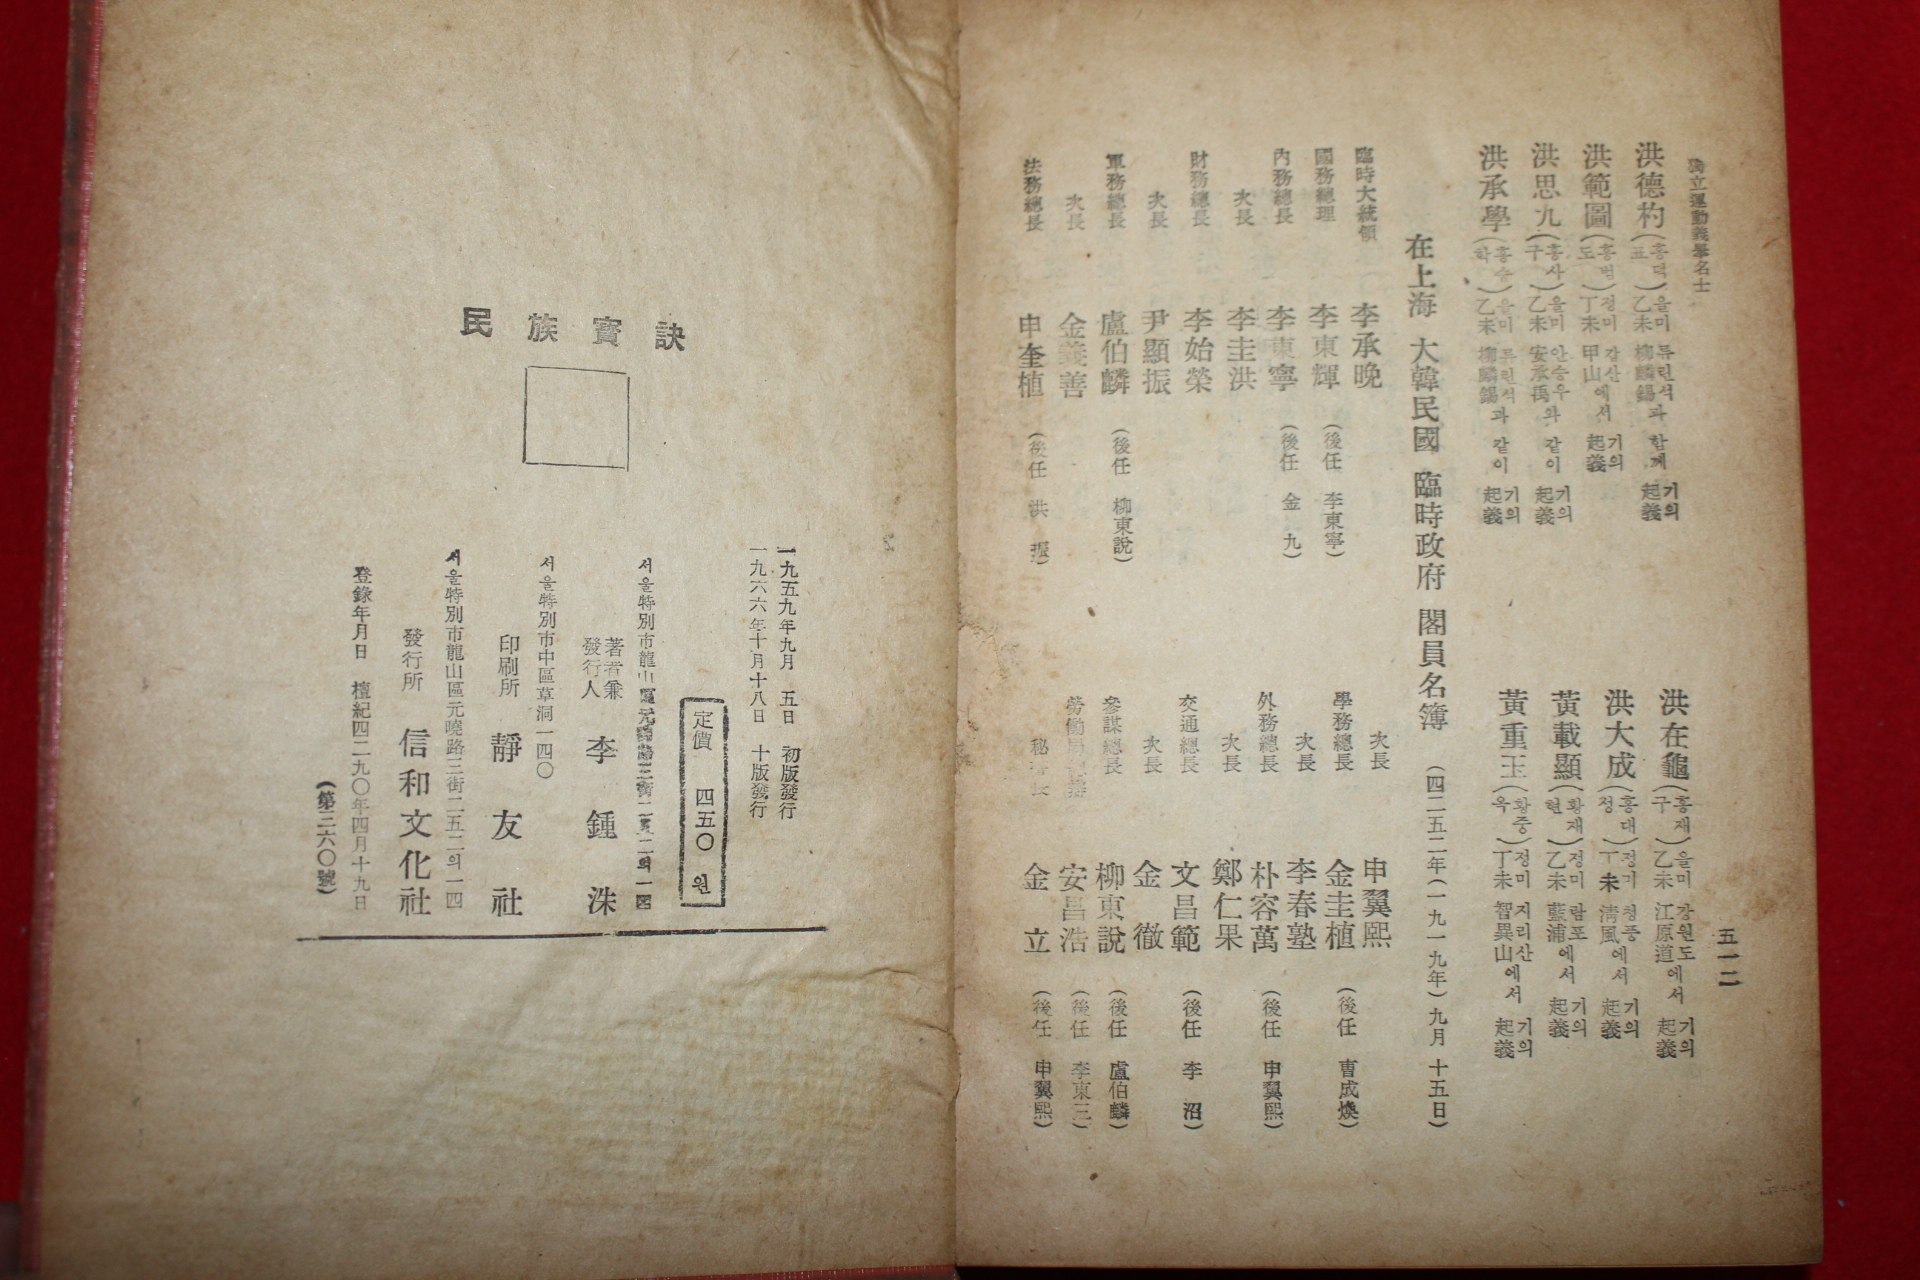 獨立運動義擧名士
五一二
洪德杓(홍덕표)乙未을미 柳麟錫류린석과 함께 起義기의
洪範圖(홍범도)丁未정미 甲山갑산에서 起義기의
洪思九(홍사구)乙未을미 安承禹안승우와 같이 起義기의
洪承學(홍승학)乙未을미 柳麟錫류린석과 같이 起義기의
洪在龜(홍재구)乙未을미 江原道강원도에서 起義기의
洪大成(홍대정)丁未정미 淸風청풍에서 起義기의
黃載顯(황재현)乙未정미 藍浦람포에서 起義기의
黃重玉(황중옥)丁未정미 智異山지리산에서 起義기의
在上海 大韓民國 臨時政府 閣員名簿 (四二五二年(一九一九年)九月 十五日)
臨時大統領 李承晩
國務總理 李東輝 (後任 李東寧)
內務總長 李東寧 (後任 金九)
次長 李圭洪
財務總長 李始榮
次長 尹顯振
軍務總長 盧伯麟 (後任 柳東說)
次長 金義善
法務總長 申奎植 (後任 洪振)
次長 申翼熙
學務總長 金圭植 (後任 曹成煥)
次長 李春塾
外務總長 朴容萬 (後任 申翼熙)
次長 鄭仁果
交通總長 文昌範 (後任 李沼)
次長 金徹
參謀總長 柳東說 (後任 盧伯麟)
勞働局 安昌浩 (後任 李東三)
秘 長 金立 (後任 申翼熙)
民族寶訣
一九五九年九月 五日 初版發行
一九六六年十月十八日 十版發行
定價 四五〇 원
서울特別市龍山區元曉路三街二五二의一四
著者兼
發行人 李鍾洙
서울特別市中區草洞一四〇
印刷所 靜友社
서울特別市龍山區元曉路三街二五二의一四
發行所 信和文化社
登錄年月日 檀紀四二九〇年四月十九日
(第三六〇號)